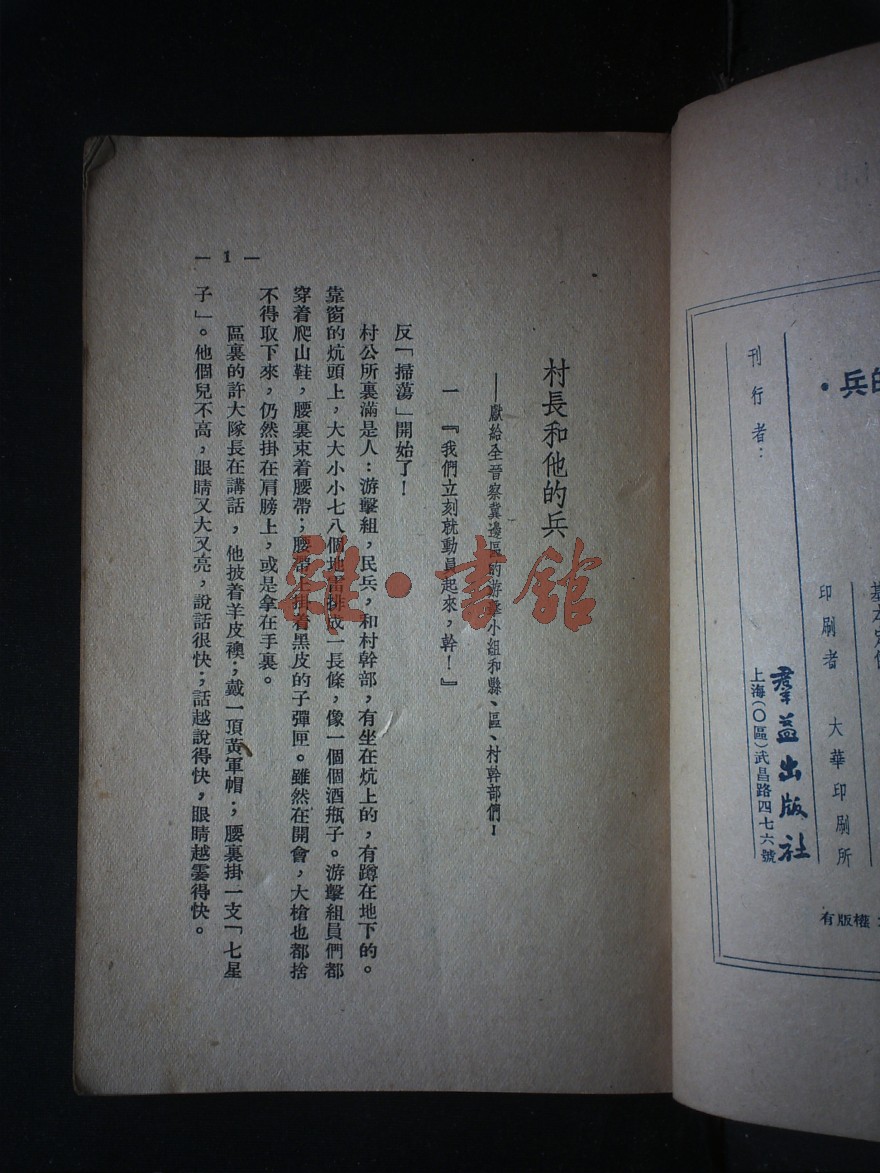 的兵・
刊行者：
印刷者 大華印刷所
羣益出版社
上海(〇區)武昌路四七六號
有版權
村長和他的兵
——獻給全晉察冀邊區的游擊小組和縣、區、村幹部們！
一 『我們立刻就動員起來，幹！』
反「掃蕩」開始了！
村公所裏滿是人：游擊組，民兵，和村幹部，有坐在炕上的，有蹲在地下的。
靠窗的炕頭上，大大小小七八個地雷排成一長條，像一個個酒瓶子。游擊組員們都
穿着爬山鞋，腰裏束着腰帶；腰帶上掛着黑皮的子彈匣。雖然在開會，大槍也都捨
不得取下來，仍然掛在肩膀上，或是拿在手裏。
區裏的許大隊長在講話，他披着羊皮襖；戴一頂黃軍帽；腰裏掛一支「七星
子」。他個兒不高，眼睛又大又亮，說話很快；話越說得快，眼睛越霎得快。
— 1 —
雜・書館